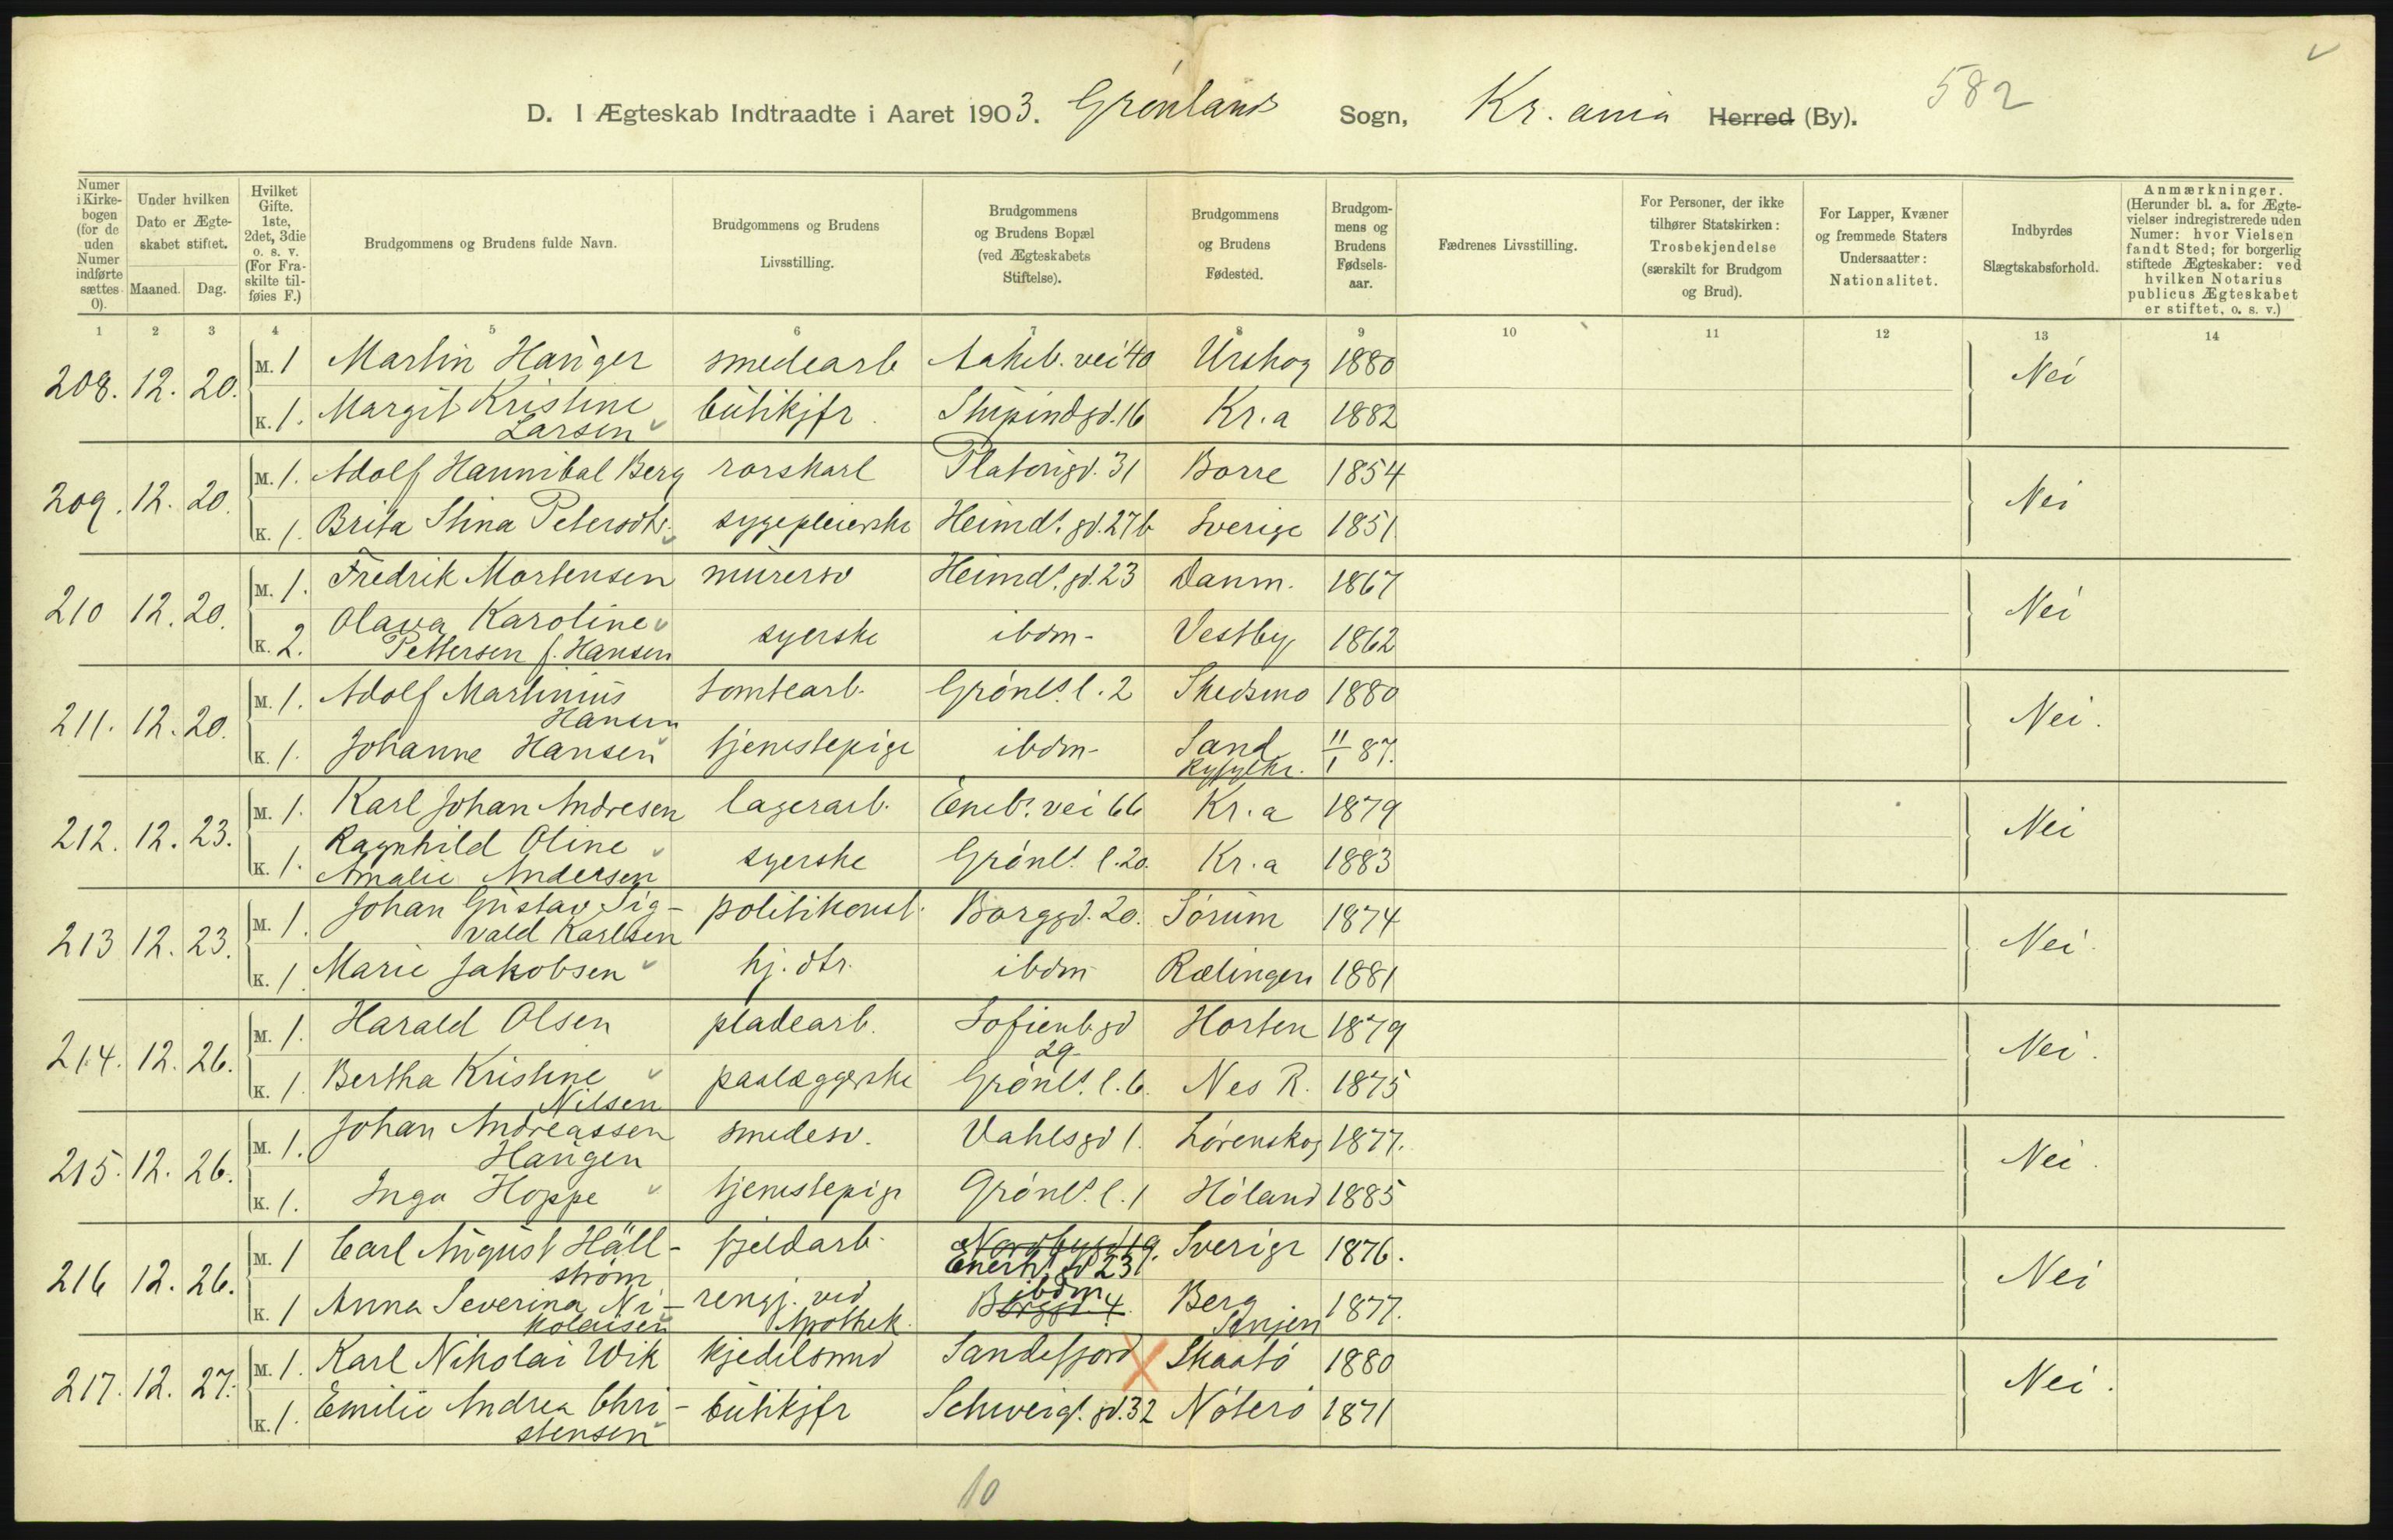 582
D. I Ægteskab Indtraadte i Aaret 1903. Grønlands Sogn, Kr.ania Herred (By).
Numer i Kirkebogen (for de uden Numer indførte sættes 0).
Under hvilken Dato er Ægteskabet stiftet.
Maaned. Dag.
Hvilket Gifte. 1ste, 2det, 3die o. s. v. (For Fraskilte tilføies F.)
Brudgommens og Brudens fulde Navn.
Brudgommens og Brudens Livsstilling.
Brudgommens og Brudens Bopæl (ved Ægteskabets Stiftelse).
Brudgommens og Brudens Fødested.
Brudgommens og Brudens Fødselsaar.
Fædrenes Livsstilling.
For Personer, der ikke tilhører Statskirken: Trosbekjendelse (særskilt for Brudgom og Brud).
For Lapper, Kvæner og fremmede Staters Undersaatter: Nationalitet.
Indbyrdes Slægtskabsforhold.
Anmærkninger. (Herunder bl. a. for Ægtevielser indregistrerede uden Numer: hvor Vielsen fandt Sted; for borgerlig stiftede Ægteskaber: ved hvilken Notarius publicus Ægteskabet er stiftet, o. s. v.)
1 2 3 4 5 6 7 8 9 10 11 12 13 14
208. 12. 20. M. 1 Martin Hauger smedearb Aakeb. vei 40 Urskog 1880 Nei
K. 1. Margit Kristine Larsen butikjfr. Stupindgd. 16 Kr.a 1882
209. 12. 20. M. 1. Adolf Hannibal Berg rorskarl Platougd. 31 Borre 1854 Nei
K. 1. Brita Stina Petersdtr. sygepleierske Heimds. gd. 27b Sverige 1851
210 12. 20. M. 1. Fredrik Mortensen murersv Heimds. gd. 23 Danm. 1867 Nei
K. 2. Olava Karoline Pettersen f. Hansen syerske ibdm- Vestby 1862
211. 12. 20. M. 1. Adolf Martinius Hansen tomtearb. Grønls. l. 2 Skedsmo 1880 Nei.
K. 1. Johanne Hansen tjenestepige ibdm- Sand Ryfylke. 11/1 87.
212. 12. 23. M. 1. Karl Johan Andresen lagerarb. Eneb. vei 66 Kr.a 1879 Nei
K. 1. Ragnhild Oline Amalie Andersen syerske Grønls. l. 20. Kr.a 1883
213 12. 23. M. 1. Johan Gustav Sig-
vald Karlsen politikonst. Borggd. 20. Sørum 1874 Nei
K. 1. Marie Jakobsen hj. dtr. ibdm Rælingen 1881
214. 12. 26. M. 1. Harald Olsen pladearb. Sofienbgd 29. Horten 1879 Nei.
K. 1. Bertha Kristine Nilsen paalæggerske Grønls. l. 6. Nes R. 1875
215. 12. 26. M. 1. Johan Andreassen Haugen smedesv. Vahlsgd 1. Lørenskog 1877. Nei.
K. 1. Inga Hoppe tjenestepige Grønls. l. 1 Høland 1885
216 12. 26. M. 1 Carl August Häll-
ström fjeldarb. Nordbygd 19. Enerh. gd 23 Sverige 1876. Nei
K. 1 Anna Severina Ni-
kolaisen rengj. ved Apothek. Borggd. 4 ibdm Berg Senjen 1877.
217. 12. 27. M. 1. Karl Nikolai Wik kjedelsmed Sandefjord Skaatø 1880 Nei.
K. 1. Emilie Andrea Chri-
stensen butikjfr Schweigs. gd. 32 Nøterø 1871
10